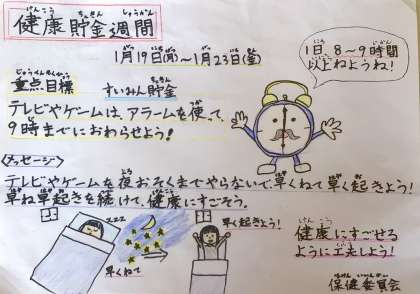 健康貯金週間
けんこうちょきんしゅうかん
1月19日(月)～1月23日(金)
重点目標
じゅうてんもくひょう
すいみん貯金
ちょきん
テレビやゲームは、アラームを使って、
9時までにおわらせよう!
1日、8～9時間
以上ねようね!
〈メッセージ〉
テレビやゲームを夜おそくまでやらないで、早くねて早く起きよう!
早ね早起きを続けて、健康にすごそう。
zzz
早くねて
早く起きよう!
健康にすごせる
ように工夫しよう!
保健委員会